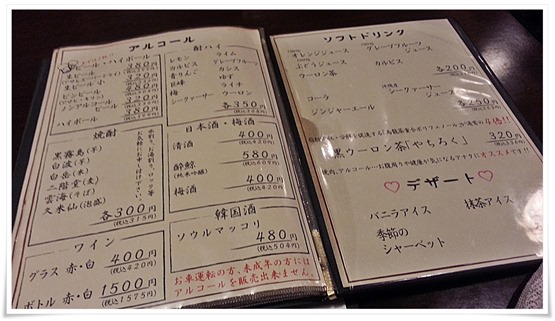 アルコール
ビール・ハイボール
生ビール
生ビール 小
ビンビール
(アサヒ・キリン)
ノンアルコールビール
ハイボール
380円
320円
380円
酎ハイ
レモン
ライム
カルピス
グレープフルーツ
青りんご
カシス
巨峰
ゆず
梅
ライチ
シークァーサー
ウーロン
各350円
焼酎
黒霧島(芋)
白波(芋)
白岳(米)
二階堂(麦)
雲海(そば)
久米仙(泡盛)
各300円
(税込315円)
日本酒・梅酒
清酒
400円
(税込420円)
酔鯨
580円
(純米吟醸)
(税込609円)
梅酒
400円
(税込420円)
ワイン
グラス 赤・白
400円
(税込420円)
ボトル 赤・白
1500円
(税込1575円)
韓国酒
ソウルマッコリ
480円
(税込504円)
お車運転の方、未成年の方には
アルコールを販売出来ません。
ソフトドリンク
100%
オレンジジュース
100%
グレープフルーツ
ジュース
100%
ぶどうジュース
カルピス
ウーロン茶
各200円
コーラ
シークァーサー
ジュース
ジンジャーエール
各250円
黒ウーロン茶「やちろく」
320円
(税込336円)
デザート
バニラアイス
抹茶アイス
季節の
シャーベット